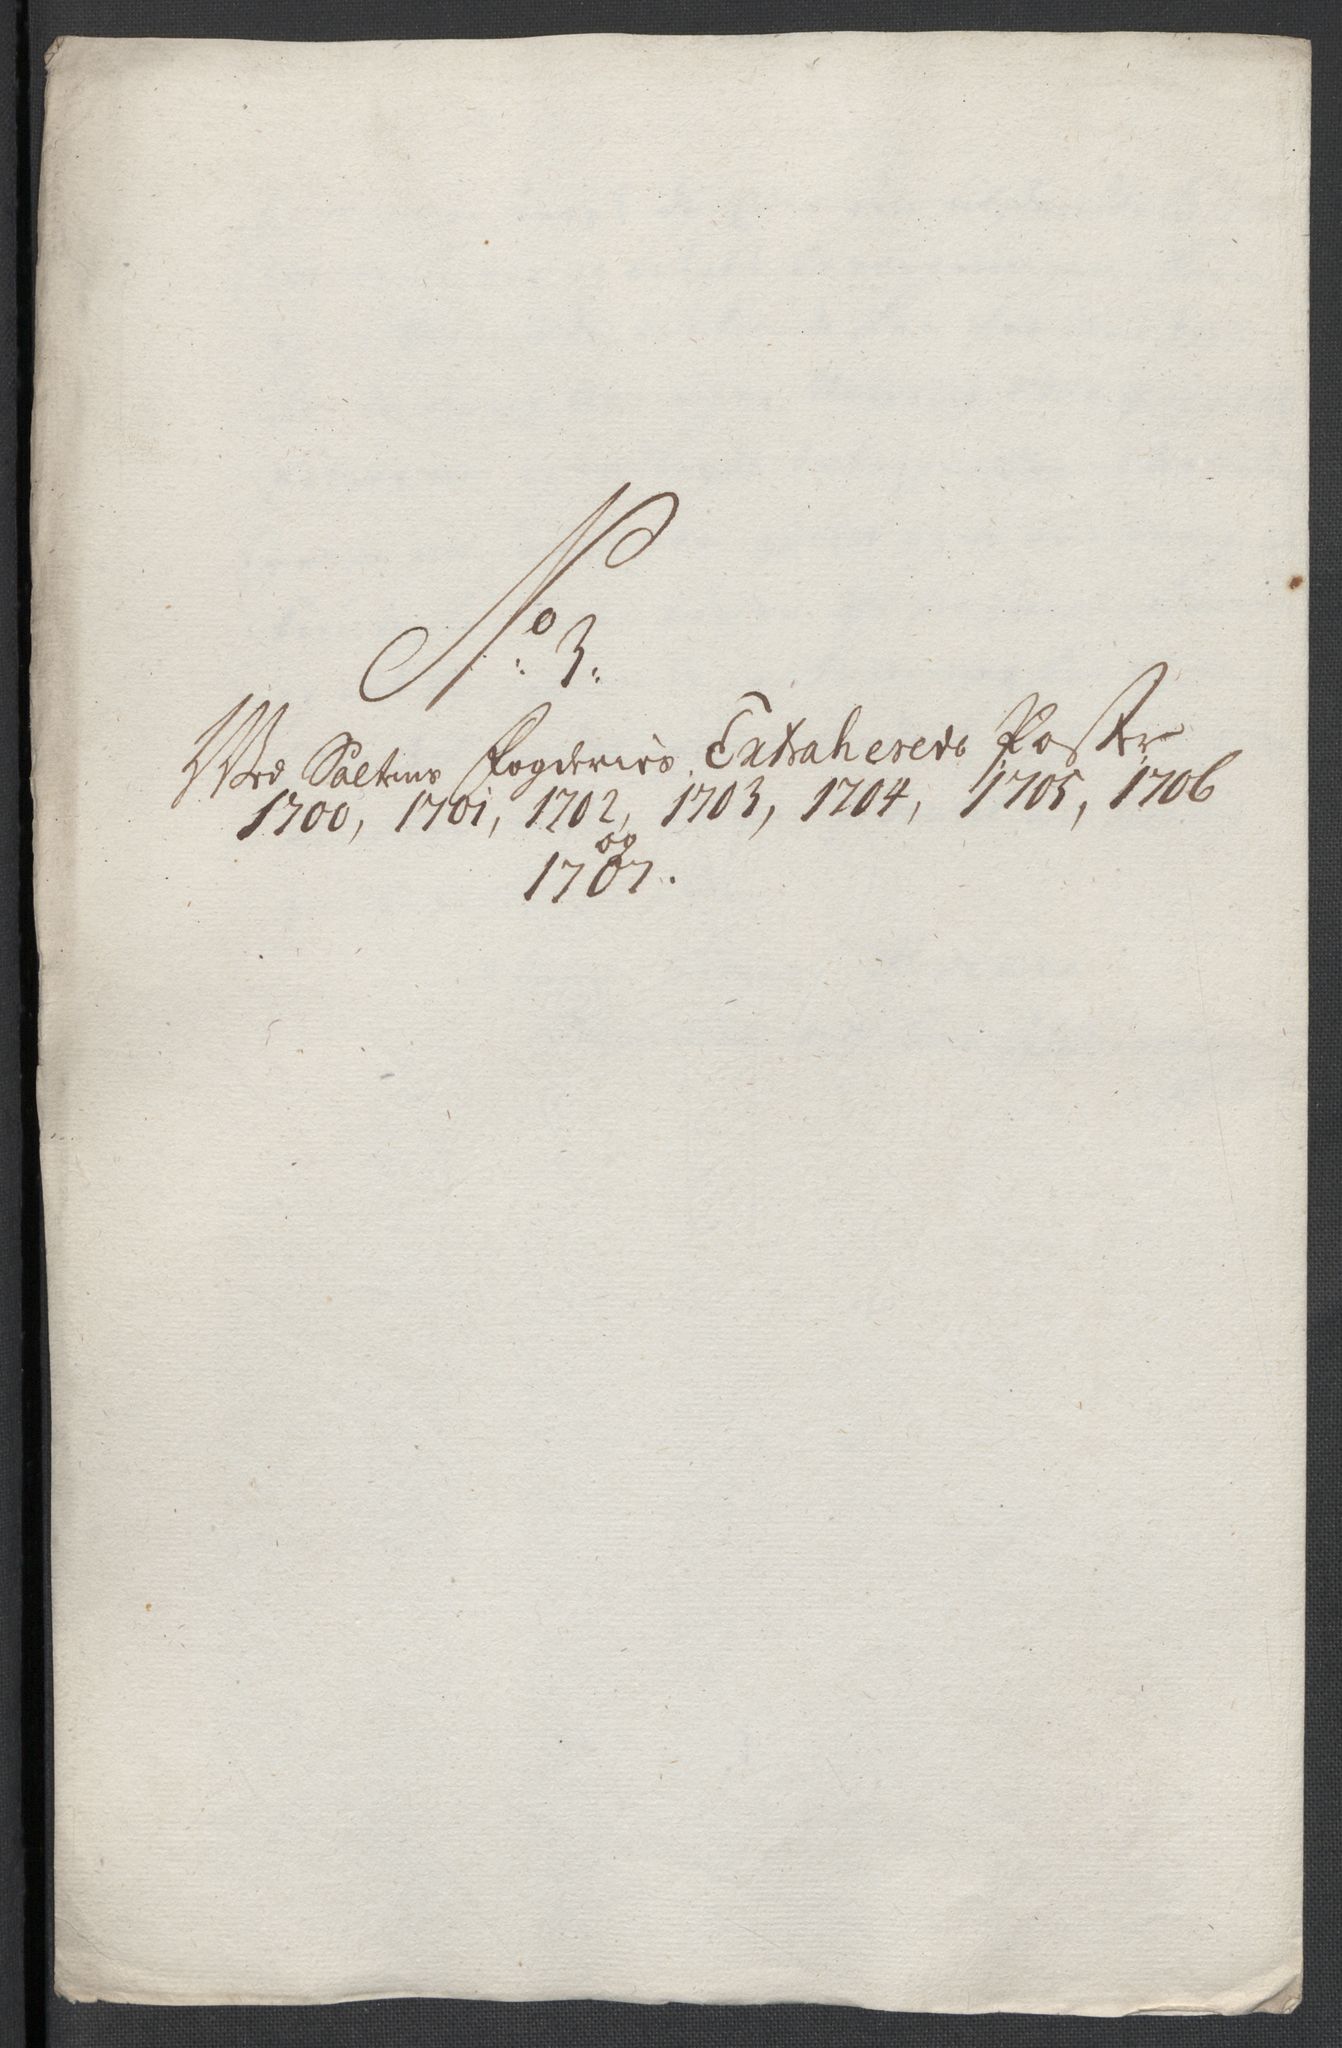 No: 3:
Ved Saltens Fogderies Extraherede Poster
1700, 1701, 1702, 1703, 1704, 1705, 1706
og
1707.